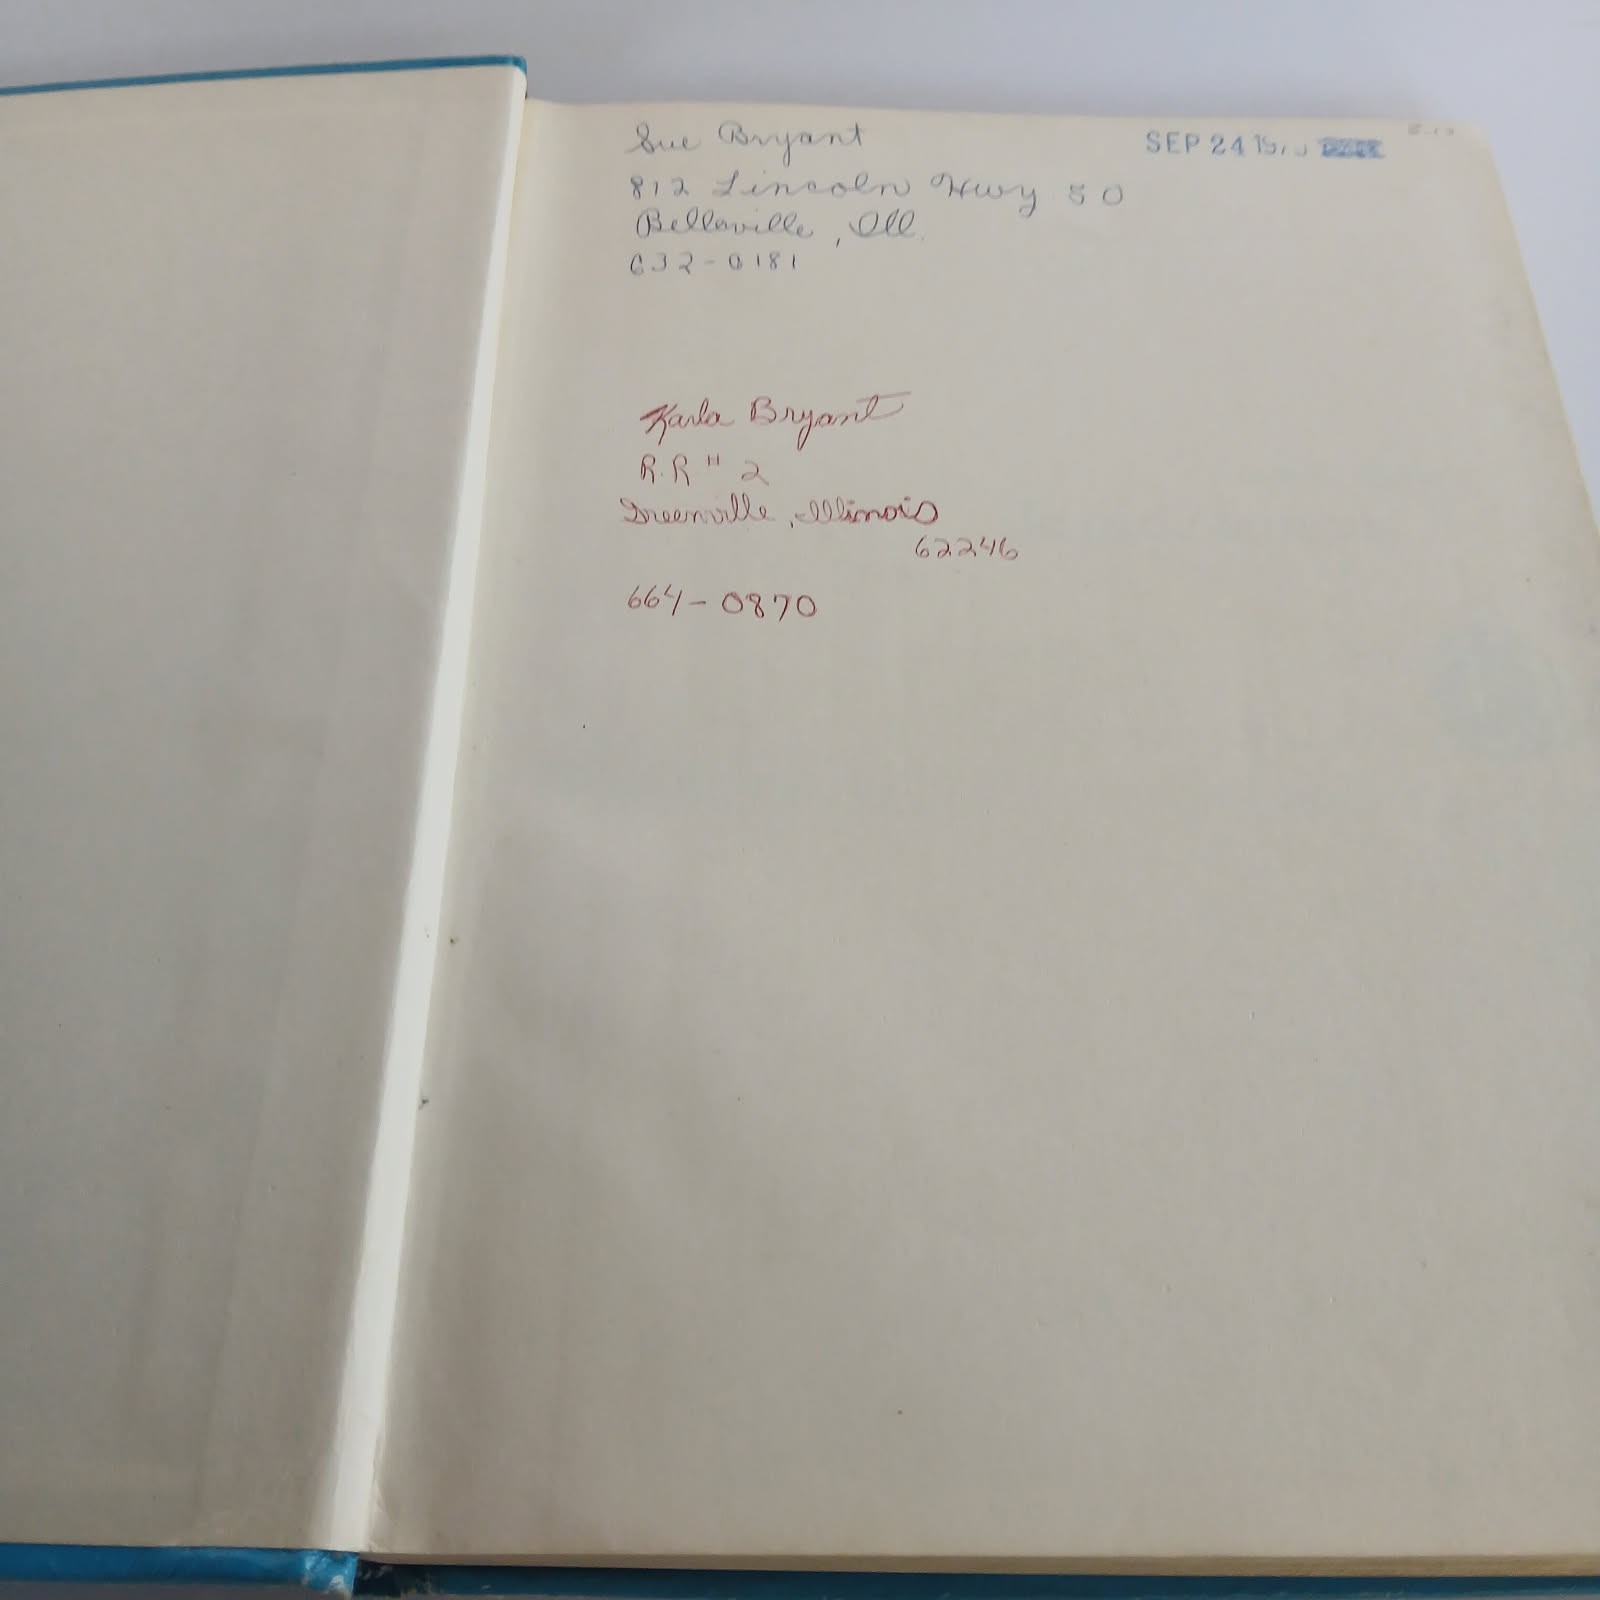 Sue Bryant
SEP 24
812 Lincoln Hwy 50
Belleville, Ill.
632-0181
Karla Bryant
R.R # 2
Greenville, Illinois
62246
664-0870